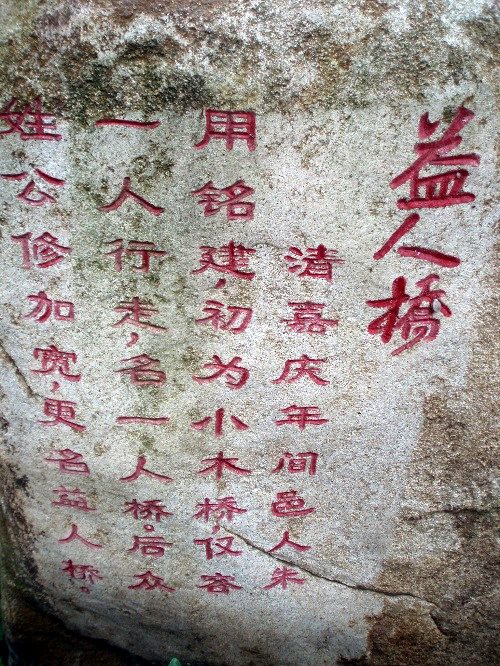 益人桥
清嘉庆年间邑人朱
用铭建,初为小木桥,仅容
一人行走,名一人桥。后众
姓公修加宽,更名益人桥。